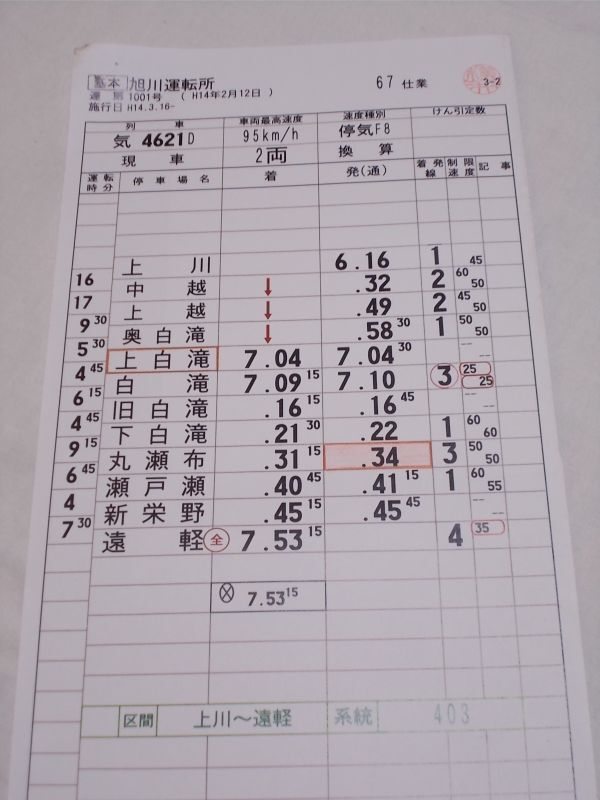 基本 旭川運転所 67 仕業 3-2
達 別 1001号 ( H14年2月12日 )
施行日 H14.3.16-
列車 車両最高速度 速度種別 けん引定数
気 4621D 95km/h 停気F8
現車 2両 換算
運転時分 停車場名 着 発(通) 着発線 制限速度 記事
上川 6.16 1 45
16
中越 ↓ .32 2 60 50
17
上越 ↓ .49 2 45 50
9 30
奥白滝 ↓ .58 30 1 50 50
5 30
上白滝 7.04 7.04 30 -- --
4 45
白滝 7.09 15 7.10 3 25 25
6 15
旧白滝 .16 15 .16 45 -- --
4 45
下白滝 .21 30 .22 1 60 60
9 15
丸瀬布 .31 15 .34 3 50 50
6 45
瀬戸瀬 .40 45 .41 15 1 60 55
4
新栄野 .45 15 .45 45 -- --
7 30
遠軽 全 7.53 15 4 35
7.53 15
区間 上川～遠軽 系統 403